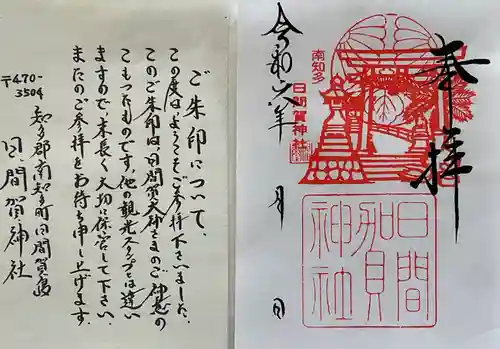 ご朱印について、
この度はようこそご参拝下さいました。
このご朱印は、日間賀大神さまのご神意の
こもったものです。他の観光スタンプとは違い
ますので、末長く大切に保存して下さい。
またのご参拝をお待ち申し上げます。
〒470-
3504
知多郡南知多町日間賀島
日間賀神社
奉拝
南知多
日間賀神社
日間
賀
神社
令和六年 月 日